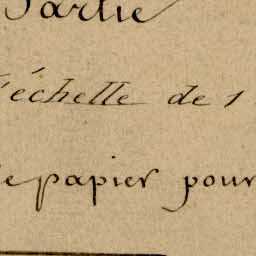 Partie
l'échelle de 1
le papier pour